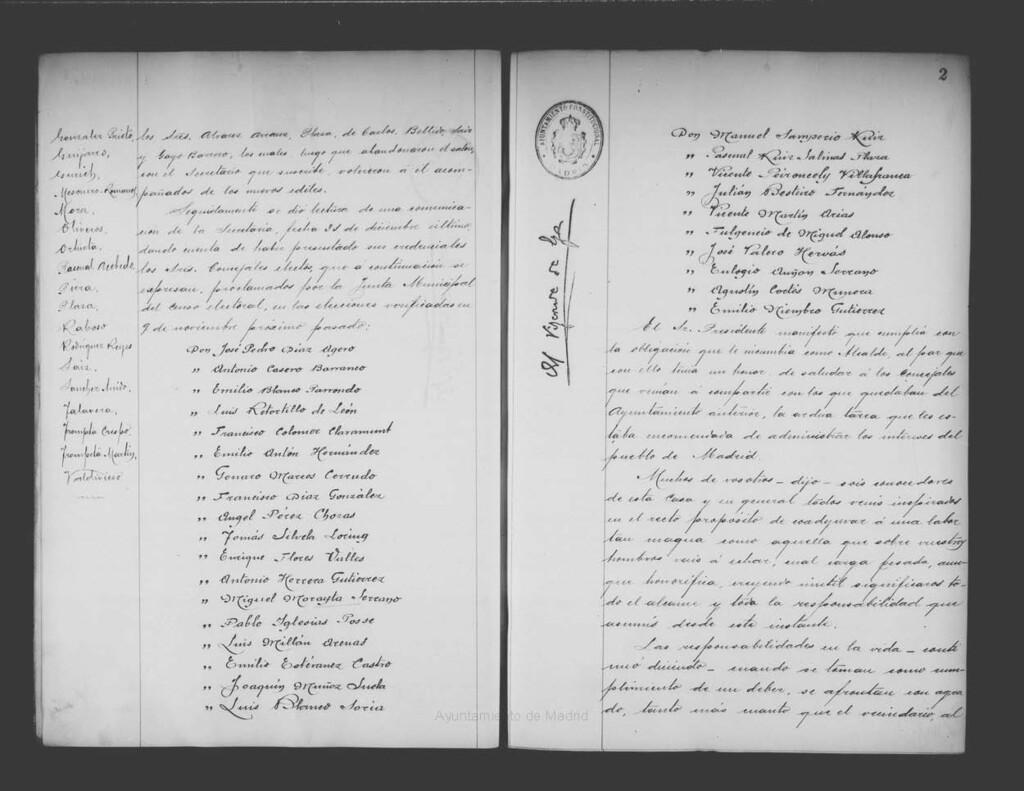 Gonzalez Prieto,
Guijarro,
Mesonero-Romanos
Mora,
Oliveros,
Orhueta,
Pascual Acebedo,
Piera,
Plaza,
Raboso
Rodriguez Reyes
Sáiz,
Talavera,
Trompeta Crespo,
Trompeta Martin,
Valdivieso
los Sres. Alvarez Arranz, Plaza, de Carlos, Bellido, Saiz
y Gayo Barrero, los cuales luego que abandonaron el salon,
con el Secretario que suscribe, volvieron á él acom-
pañados de los nuevos ediles.
Seguidamente se dió lectura de una comunica-
ción de la Secretaría, fecha 31 de diciembre último,
dando cuenta de haber presentado sus credenciales
los Sres. Concejales electos, que á continuación se
expresan, proclamados por la Junta Municipal
del Censo electoral, en las elecciones verificadas en
9 de noviembre próximo pasado:
Don José Pedro Diaz Agero
" Antonio Casero Barranco
" Emilio Blanco Parrondo
" Luis Retortillo de León
" Francisco Colomer Claramunt
" Emilio Antón Hernández
" Genaro Marcos Corrudo
" Francisco Diaz González
" Angel Pérez Chozas
" Tomás Silvela Loring
" Enrique Flores Valles
" Antonio Herrera Gutierrez
" Miguel Morayta Serrano
" Pablo Iglesias Posse
" Luis Millán Arenas
" Emilio Estévanez Castro
" Joaquín Muñoz
" Luis Blanco Soria
AYUNTAMIENTO CONSTITUCIONAL
MADRID
El Vizconde de Eza
2
Don Manuel Samperio Ruiz
" Pascual Ruiz Salinas
" Vicente Peironcely Villafranca
" Julián Besteiro Fernández
" Vicente Martín Arias
" Fulgencio de Miguel Alonso
" José Valero Hervás
" Eulogio Auñon Serrano
" Agustín Codes Munera
" Emilio Niembro Gutierrez
El Sr. Presidente manifestó que cumplía con
la obligación que le incumbía como Alcalde, al par que
con ello tenía un honor, de saludar á los Concejales
que venían á compartir con los que quedaban del
Ayuntamiento anterior, la ardua tarea que les es-
taba encomendada de administrar los intereses del
pueblo de Madrid.
Muchos de vosotros - dijo - sois conocedores
de esta Casa y en general todos venis inspirados
en el recto propósito de coadyuvar á una labor
tan magna como aquella que sobre vuestros
hombros vais á echar, cual carga pesada, aun-
que honorífica, creyendo inutil significaros to-
do el alcance y toda la responsabilidad que
asumís desde este instante.
Las responsabilidades en la vida - conti
nuó diciendo - cuando se toman como cum-
plimiento de un deber, se afrontan con agra-
do, tanto más cuanto que el vecindario, al
Ayuntamiento de Madrid